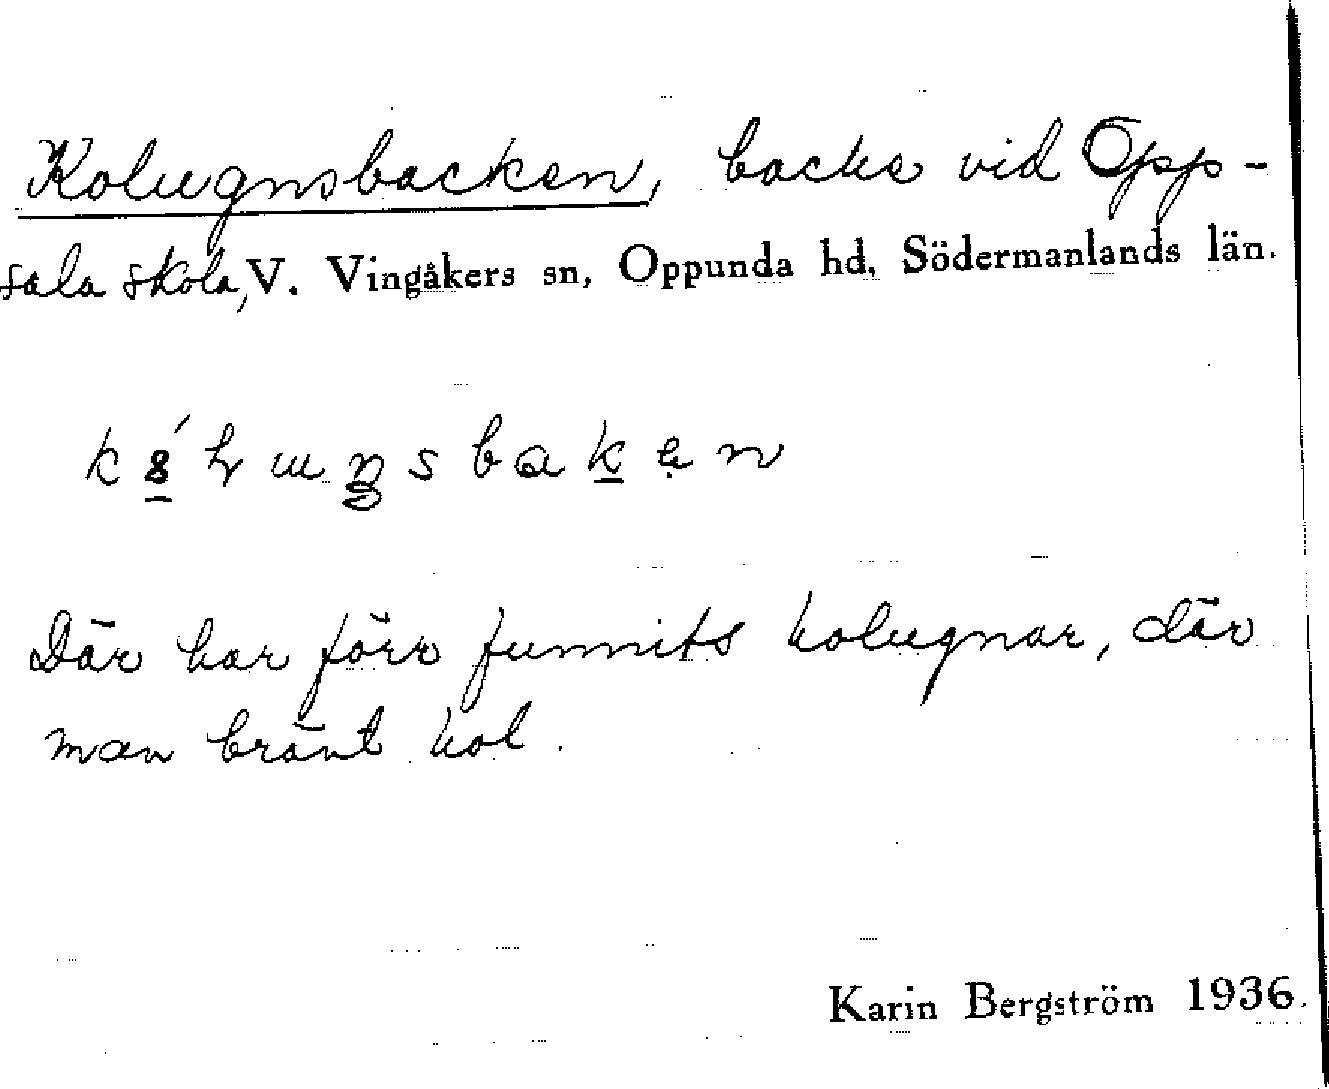 Kolugnsbacken, backe vid Opp-
sala skola, V. Vingåkers sn, Oppunda hd, Södermanlands län.
Där har förr funnits kolugnar, där
man bränt kol.
Karin Bergström 1936.